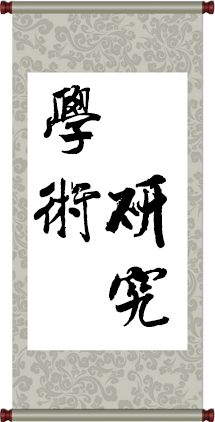 學術
研究